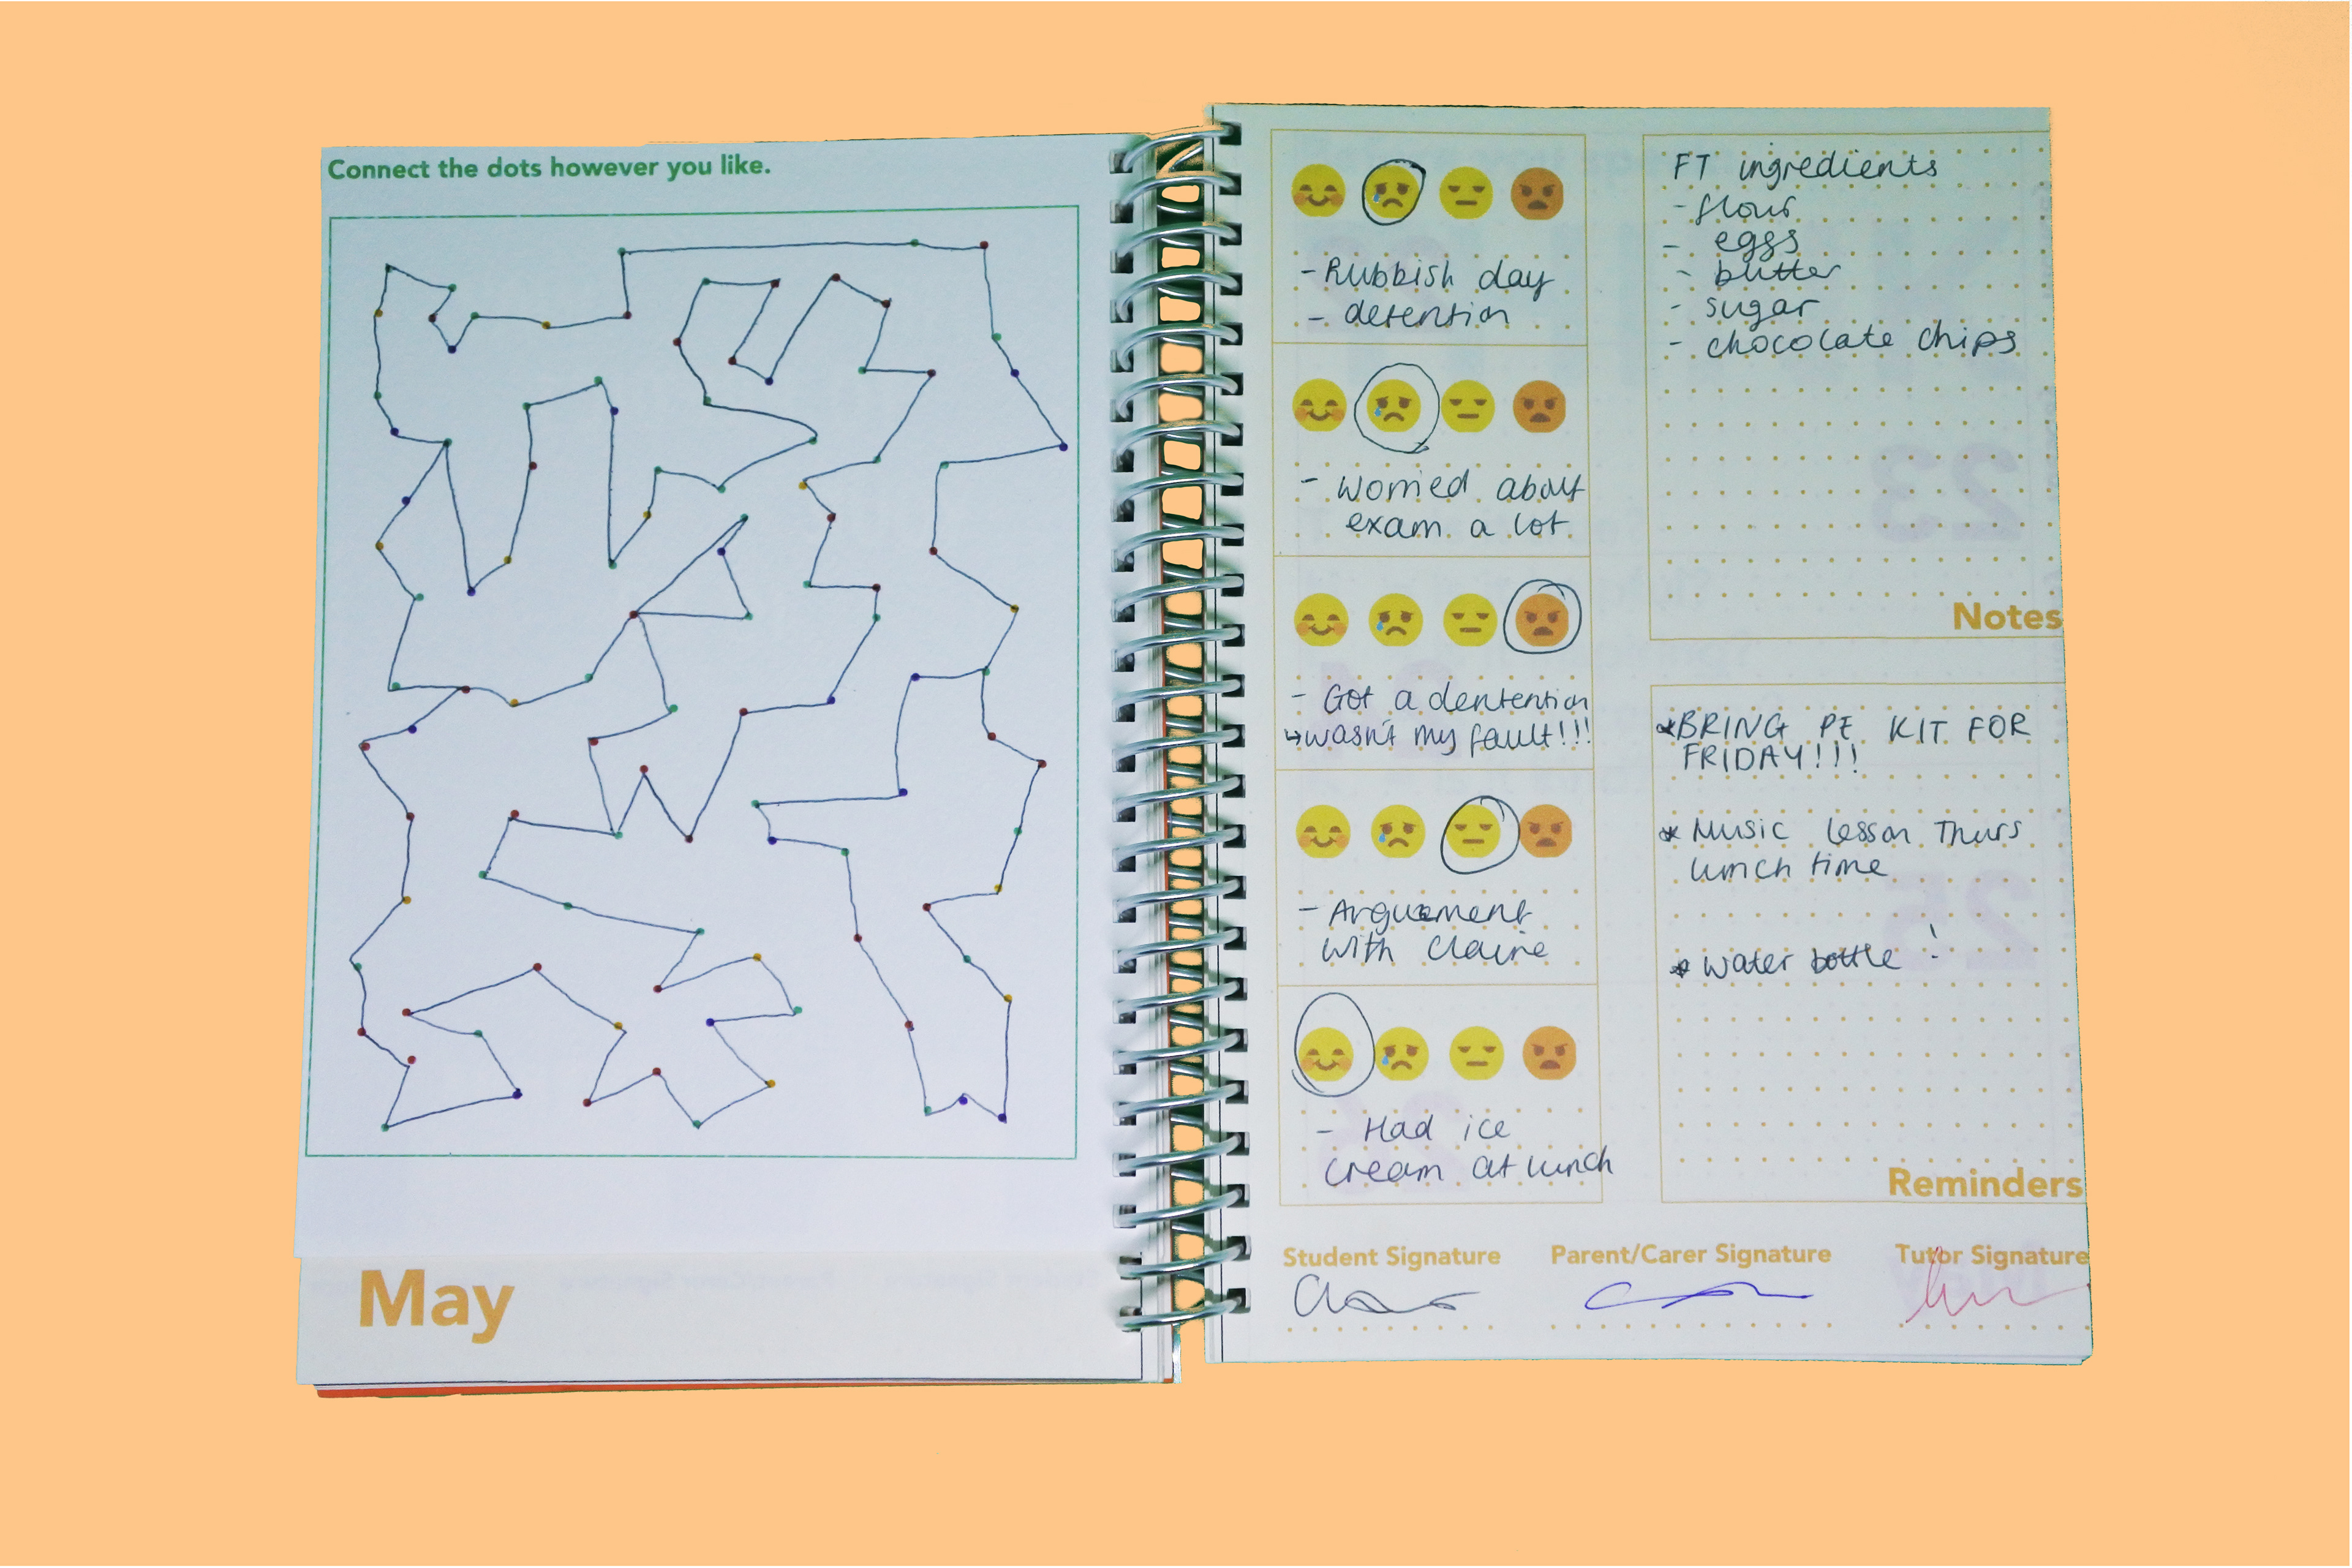 Connect the dots however you like.
May
- Rubbish day
- detention
- Worried about
exam a lot
- Got a dentention
↳wasn't my fault!!!
- Arguement
with Claire
- Had ice
cream at lunch
FT ingredients
- flour
- eggs
- butter
- sugar
- chocolate chips
Notes
*BRING PE KIT FOR
FRIDAY!!!
* Music lesson Thurs
lunch time
* water bottle !
Reminders
Student Signature
Parent/Carer Signature
Tutor Signature